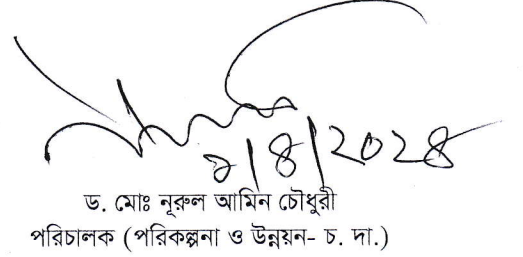 ৯/৪/২০২৪
ড. মোঃ নূরুল আমিন চৌধুরী
পরিচালক (পরিকল্পনা ও উন্নয়ন- চ. দা.)